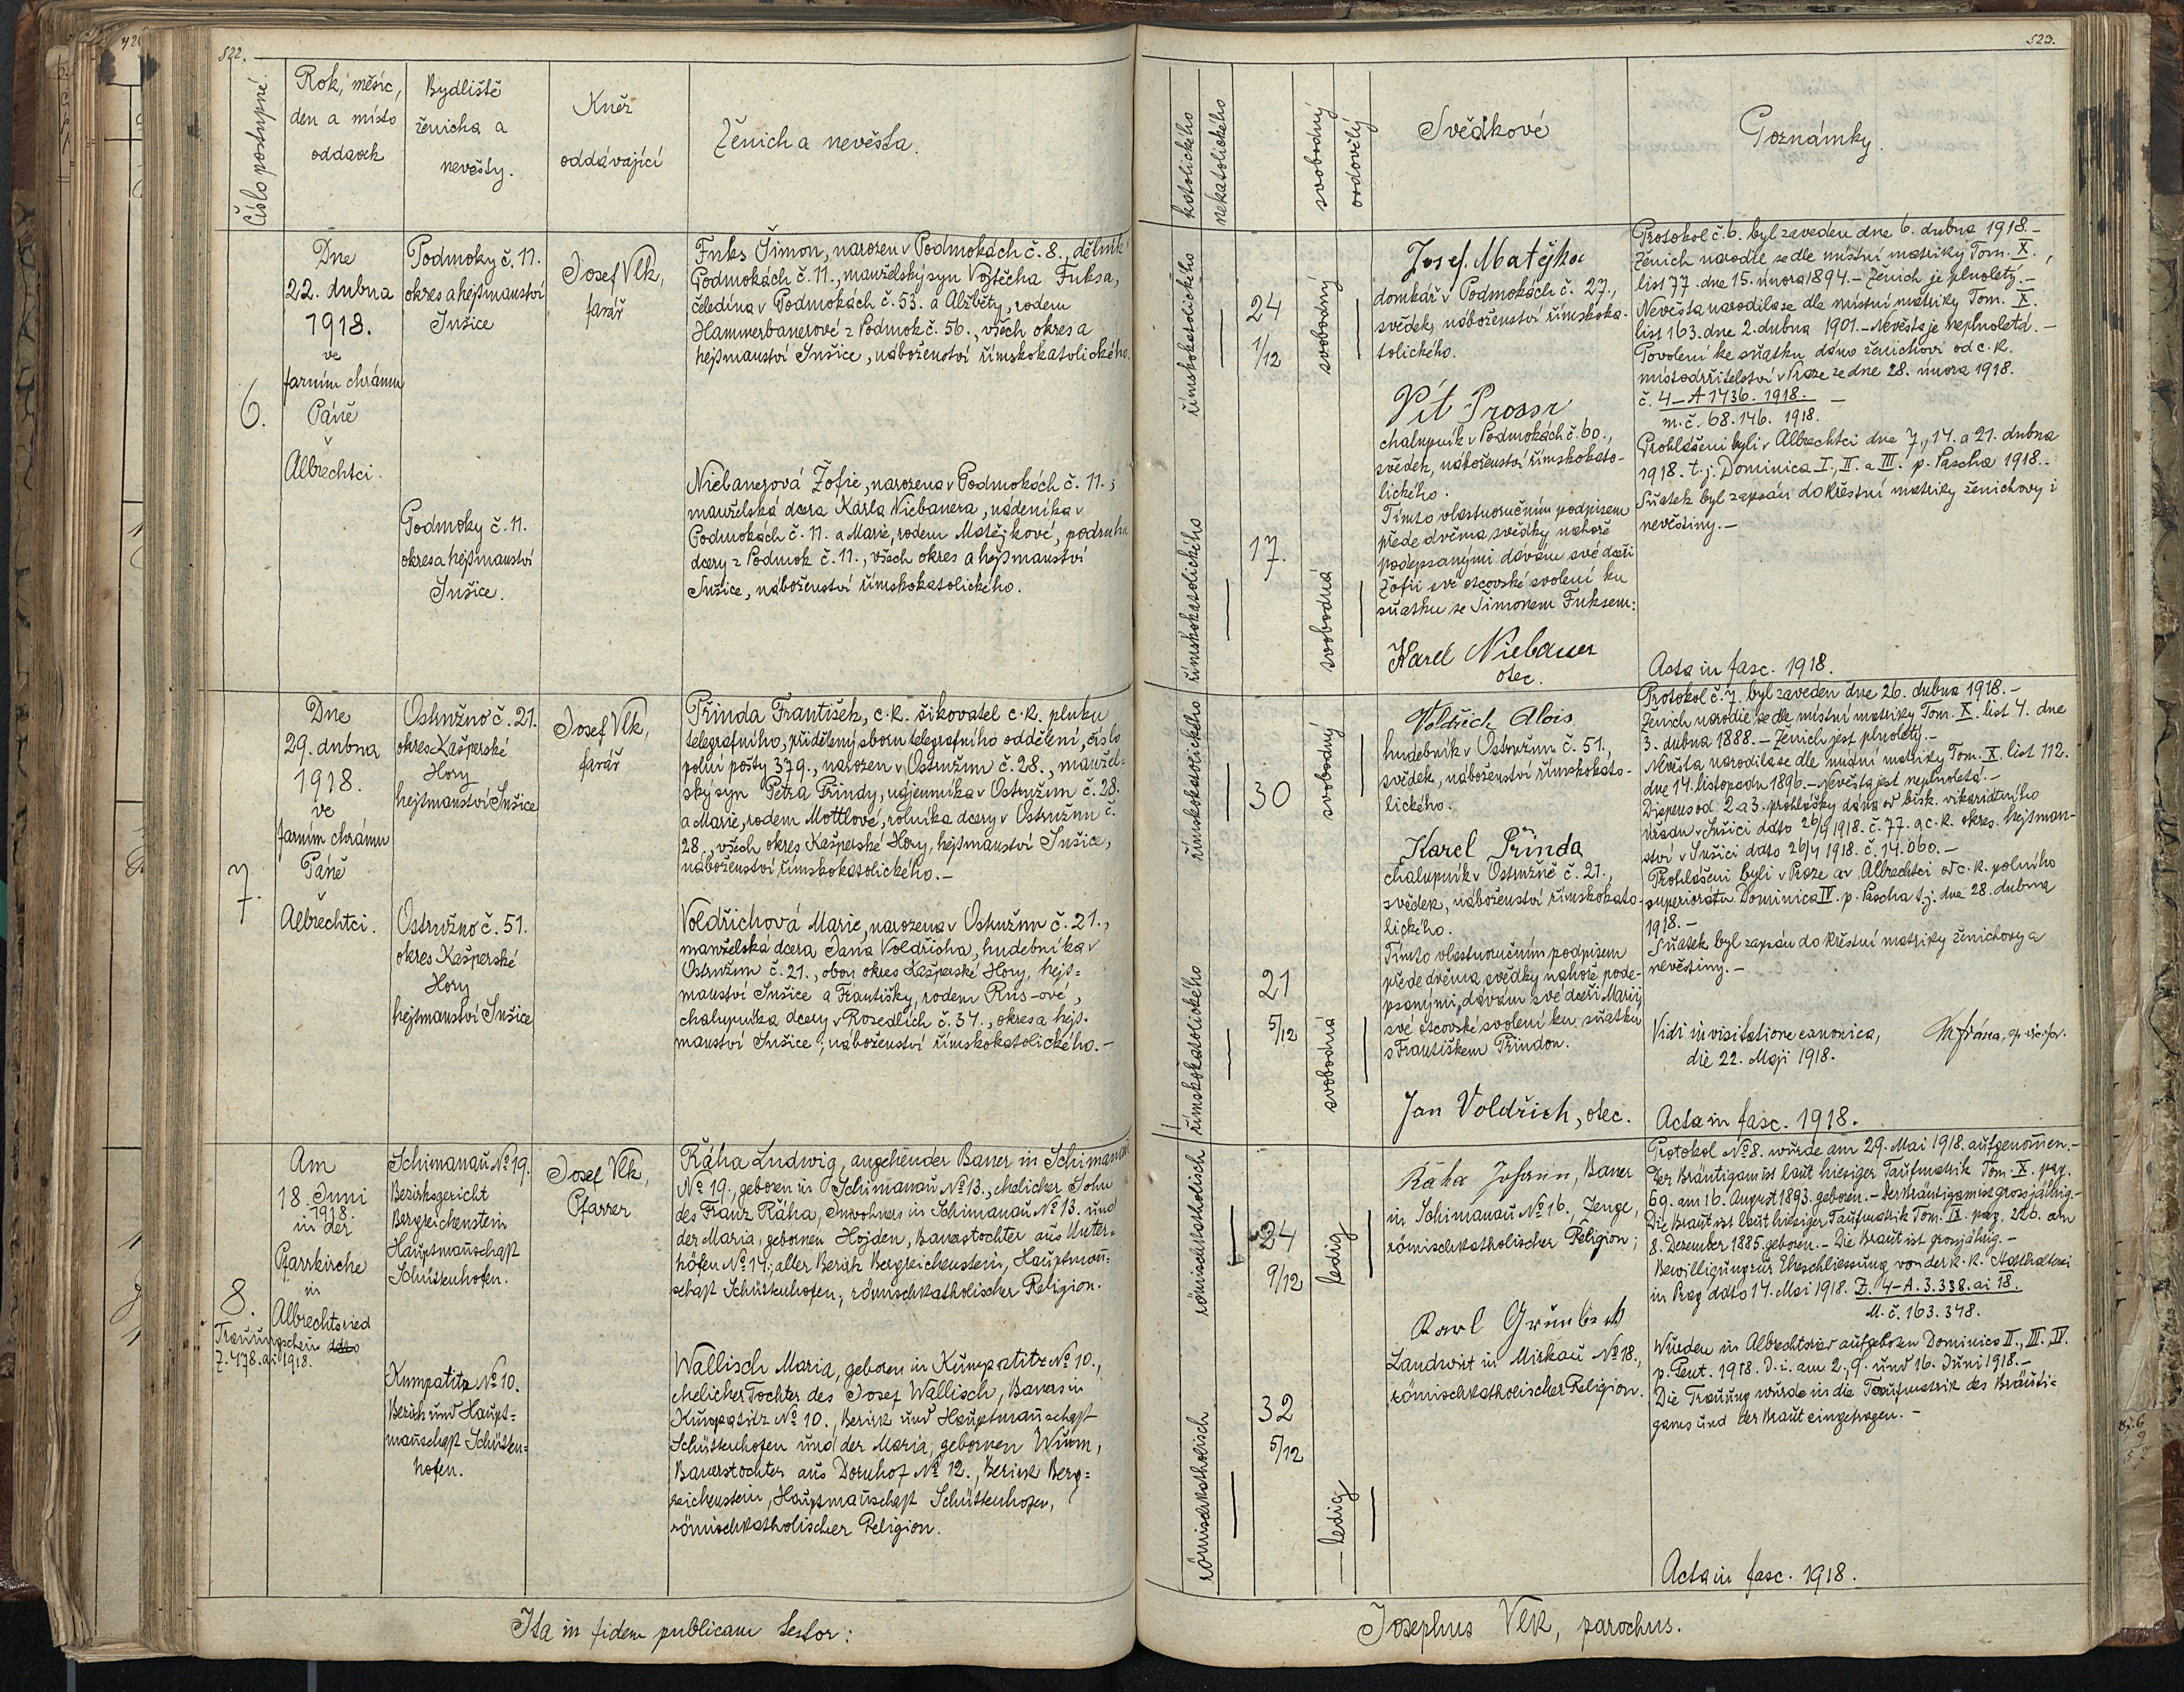 522.
Číslo postupné
Rok, měsíc,
den a místo
oddavek
Bydliště
ženicha a
nevěsty.
Kněz
oddávající
Ženich a nevěsta.
6.
Dne
22. dubna
1918.
ve
farním chrámu
Páně
v
Albrechtci.
Podmoky č. 11.
okres a hejtmanství
Sušice
Podmoky č. 11.
okres a hejtmanství
Sušice.
Josef Vlk,
farář
Fuks Šimon, narozen v Podmokách č. 8., dělník
Podmokách č. 11., manželský syn Vojtěcha Fuksa,
čeledína v Podmokách č. 53. a Alžběty, rodem
Hammerbauerové z Podmok č. 56., všech okres a
hejtmanství Sušice, náboženství římskokatolického.
Niebauerová Žofie, narozena v Podmokách č. 11.,
manželská dcera Karla Niebauera, nádeníka v
Podmokách č. 11. a Marie, rodem Matějkové, podruha
dcery z Podmok č. 11., všech okres a hejtmanství
Sušice, náboženství římskokatolického.
7.
Dne
29. dubna
1918.
ve
farním chrámu
Páně
Albrechtci.
Ostružno č. 21.
okres Kašperské
Hory
hejtmanství Sušice
Ostružno č. 51.
okres Kašperské
Hory
hejtmanství Sušice
Josef Vlk,
farář
Přinda František, c. k. šikovatel c. k. pluku
telegrafního, přidělený sboru telegrafního oddělení, číslo
polní pošty 379., narozen v Ostružnu č. 28., manžel-
ský syn Petra Přindy, nájemníka v Ostružnu č. 28.
a Marie, rodem Mottlové, rolníka dcery v Ostružnu č.
28., všech okres Kašperské Hory, hejtmanství Sušice,
náboženství římskokatolického.–
Voldřichová Marie, narozena v Ostružnu č. 21.,
manželská dcera Jana Voldřicha, hudebníka v
Ostružnu č. 21., obou okres Kašperské Hory, hejt=
manství Sušice a Františky, rodem Rus-ové,
chalupníka dcery v Rozedlích č. 34., okres a hejt-
manství Sušice, náboženství římskokatolického.–
8.
Trauungschein
Z. 478. ai 1918.
Am
18. Juni
1918
in der
Pfarrkirche
in
Albrechtsried
Schimanau No 19.
Bezirksgericht
Bergreichenstein
Hauptmannschaft
Schüttenhofen.
Kumpatitz No 10.
Bezirk und Haupt=
mannschaft Schütten=
hofen.
Josef Vlk,
Pfarrer
Ráha Ludwig, angehender Bauer in Schimanau
No 19., geboren in Schimanau No 13., ehelicher Sohn
des Franz Ráha, Inwohners in Schimanau No 13. und
der Maria, gebornen Hojden, Bauerstochter aus Unter=
höfen No 14.; aller Bezirk Bergreichenstein, Hauptmann=
schaft Schüttenhofen; römischkatholischer Religion.
Wallisch Maria, geboren in Kumpatitz No 10.,
ehelicher Tochter des Josef Wallisch, Bauers in
Kumpatitz No 10., Bezirk und Hauptmannschaft
Schüttenhofen und der Maria, gebornen Wurm,
Bauerstochter aus Dornhof No 12., Bezirk Berg=
reichenstein, Hauptmannschaft Schüttenhofen,
römischkatholischer Religion.
Ita in fidem publicam testor:
523.
katolického
nekatolického
svobodný
ovdovělý
Svědkové
Poznámky.
římskokatolického
24
1/12
svobodný
římskokatolického
17.
svobodná
Josef Matějka
domkář v Podmokách č. 27.,
svědek, náboženství římskoka-
tolického.
Vít Prossr
chalupník v Podmokách č. 60.,
svědek, náboženství římskokato-
lického.
Tímto vlastnoručním podpisem
přede dvěma svědky nahoře
podepsanými dávám své dceři
Žofii své otcovské svolení ku
sňatku se Šimonem Fuksem:
Karel Niebauer
otec.
Protokol č. 6. byl zaveden dne 6. dubna 1918.–
Ženich narodil se dle místní matriky Tom. X.,
list 77. dne 15. února 1894.– Ženich je plnoletý.–
Nevěsta narodila se dle místní matriky Tom. X.
list 163. dne 2. dubna 1901.– Nevěsta je neplnoletá.–
Povolení ke sňatku dáno ženichovi od c. k.
místodržitelství v Praze ze dne 28. února 1918.
č. 4–A 1736. 1918. –
m. č. 68.146. 1918.
Prohlášeni byli v Albrechtci dne 7., 14. a 21. dubna
1918. t. j. Dominica I., II. a III. p. Pascha 1918.–
Sňatek byl zapsán do křestní matriky ženichovy i
nevěstiny.–
Acta in fasc. 1918.
římskokatolického
30
svobodný
římskokatolického
21
5/12
svobodná
Voldřich Alois
hudebník v Ostružnu č. 51.,
svědek, náboženství římskokato-
lického.
Karel Přinda
chalupník v Ostružně č. 21.,
svědek, náboženství římskokato-
lického.
Tímto vlastnoručním podpisem
přede dvěma svědky nahoře pode-
psanými, dávám své dceři Marii
své otcovské svolení ku sňatku
s Františkem Přindou.
Jan Voldřich, otec.
Protokol č. 7. byl zaveden dne 26. dubna 1918.–
Ženich narodil se dle místní matriky Tom. X. list 4. dne
3. dubna 1888.– Ženich jest plnoletý.–
Nevěsta narodila se dle místní matriky Tom. X. list 112.
dne 14. listopadu 1896.– Nevěsta jest neplnoletá.–
Dispens od 2. a 3. prohlášky dána od bisk. vikariátního
úřadu v Sušici ddto 26/4 1918. č. 77. a c. k. okres. hejtman-
ství v Sušici ddto 26/4 1918. č. 14.060.–
Prohlášeni byli v Praze a v Albrechtci od c. k. polního
superiorátu Dominica IV. p. Pascha t. j. dne 28. dubna
1918.–
Sňatek byl zapsán do křestní matriky ženichovy a
nevěstiny.–
Vidi in visitatione canonica,
die 22. Maji 1918.
Acta in fasc. 1918.
römischkatholisch
24
9/12
ledig
römischkatholisch
32
5/12
ledig
Ráha Johann, Bauer
in Schimanau No 16., Zeuge,
römischkatholischer Religion;
Karl Grünbich
Landwirt in Mirkau No 18.,
römischkatholischer Religion.
Protokol No 8. wurde am 29. Mai 1918. aufgenommen.–
Der Bräutigam ist laut hiesiger Taufmatrik Tom. X. pag.
69. am 16. August 1893. geboren.– Der Bräutigam ist grossjährig.–
Die Braut ist laut hiesiger Taufmatrik Tom. IX. pag. 226. am
8. Dezember 1885. geboren.– Die Braut ist grossjährig.–
Bewilligung zur Eheschliessung von der k. k. Statthalterei
in Prag ddto 14. Mai 1918. Z. 4–A. 3.338. ai 18.
M. č. 163.348.
Wurden in Albrechtsried aufgeboten Dominica II., III. IV.
p. Pent. 1918. d. i. am 2., 9. und 16. Juni 1918.–
Die Trauung wurde in die Taufmatrik des Bräuti=
gams und der Braut eingetragen.–
Acta in fasc. 1918.
Josephus Vlk, parochus.